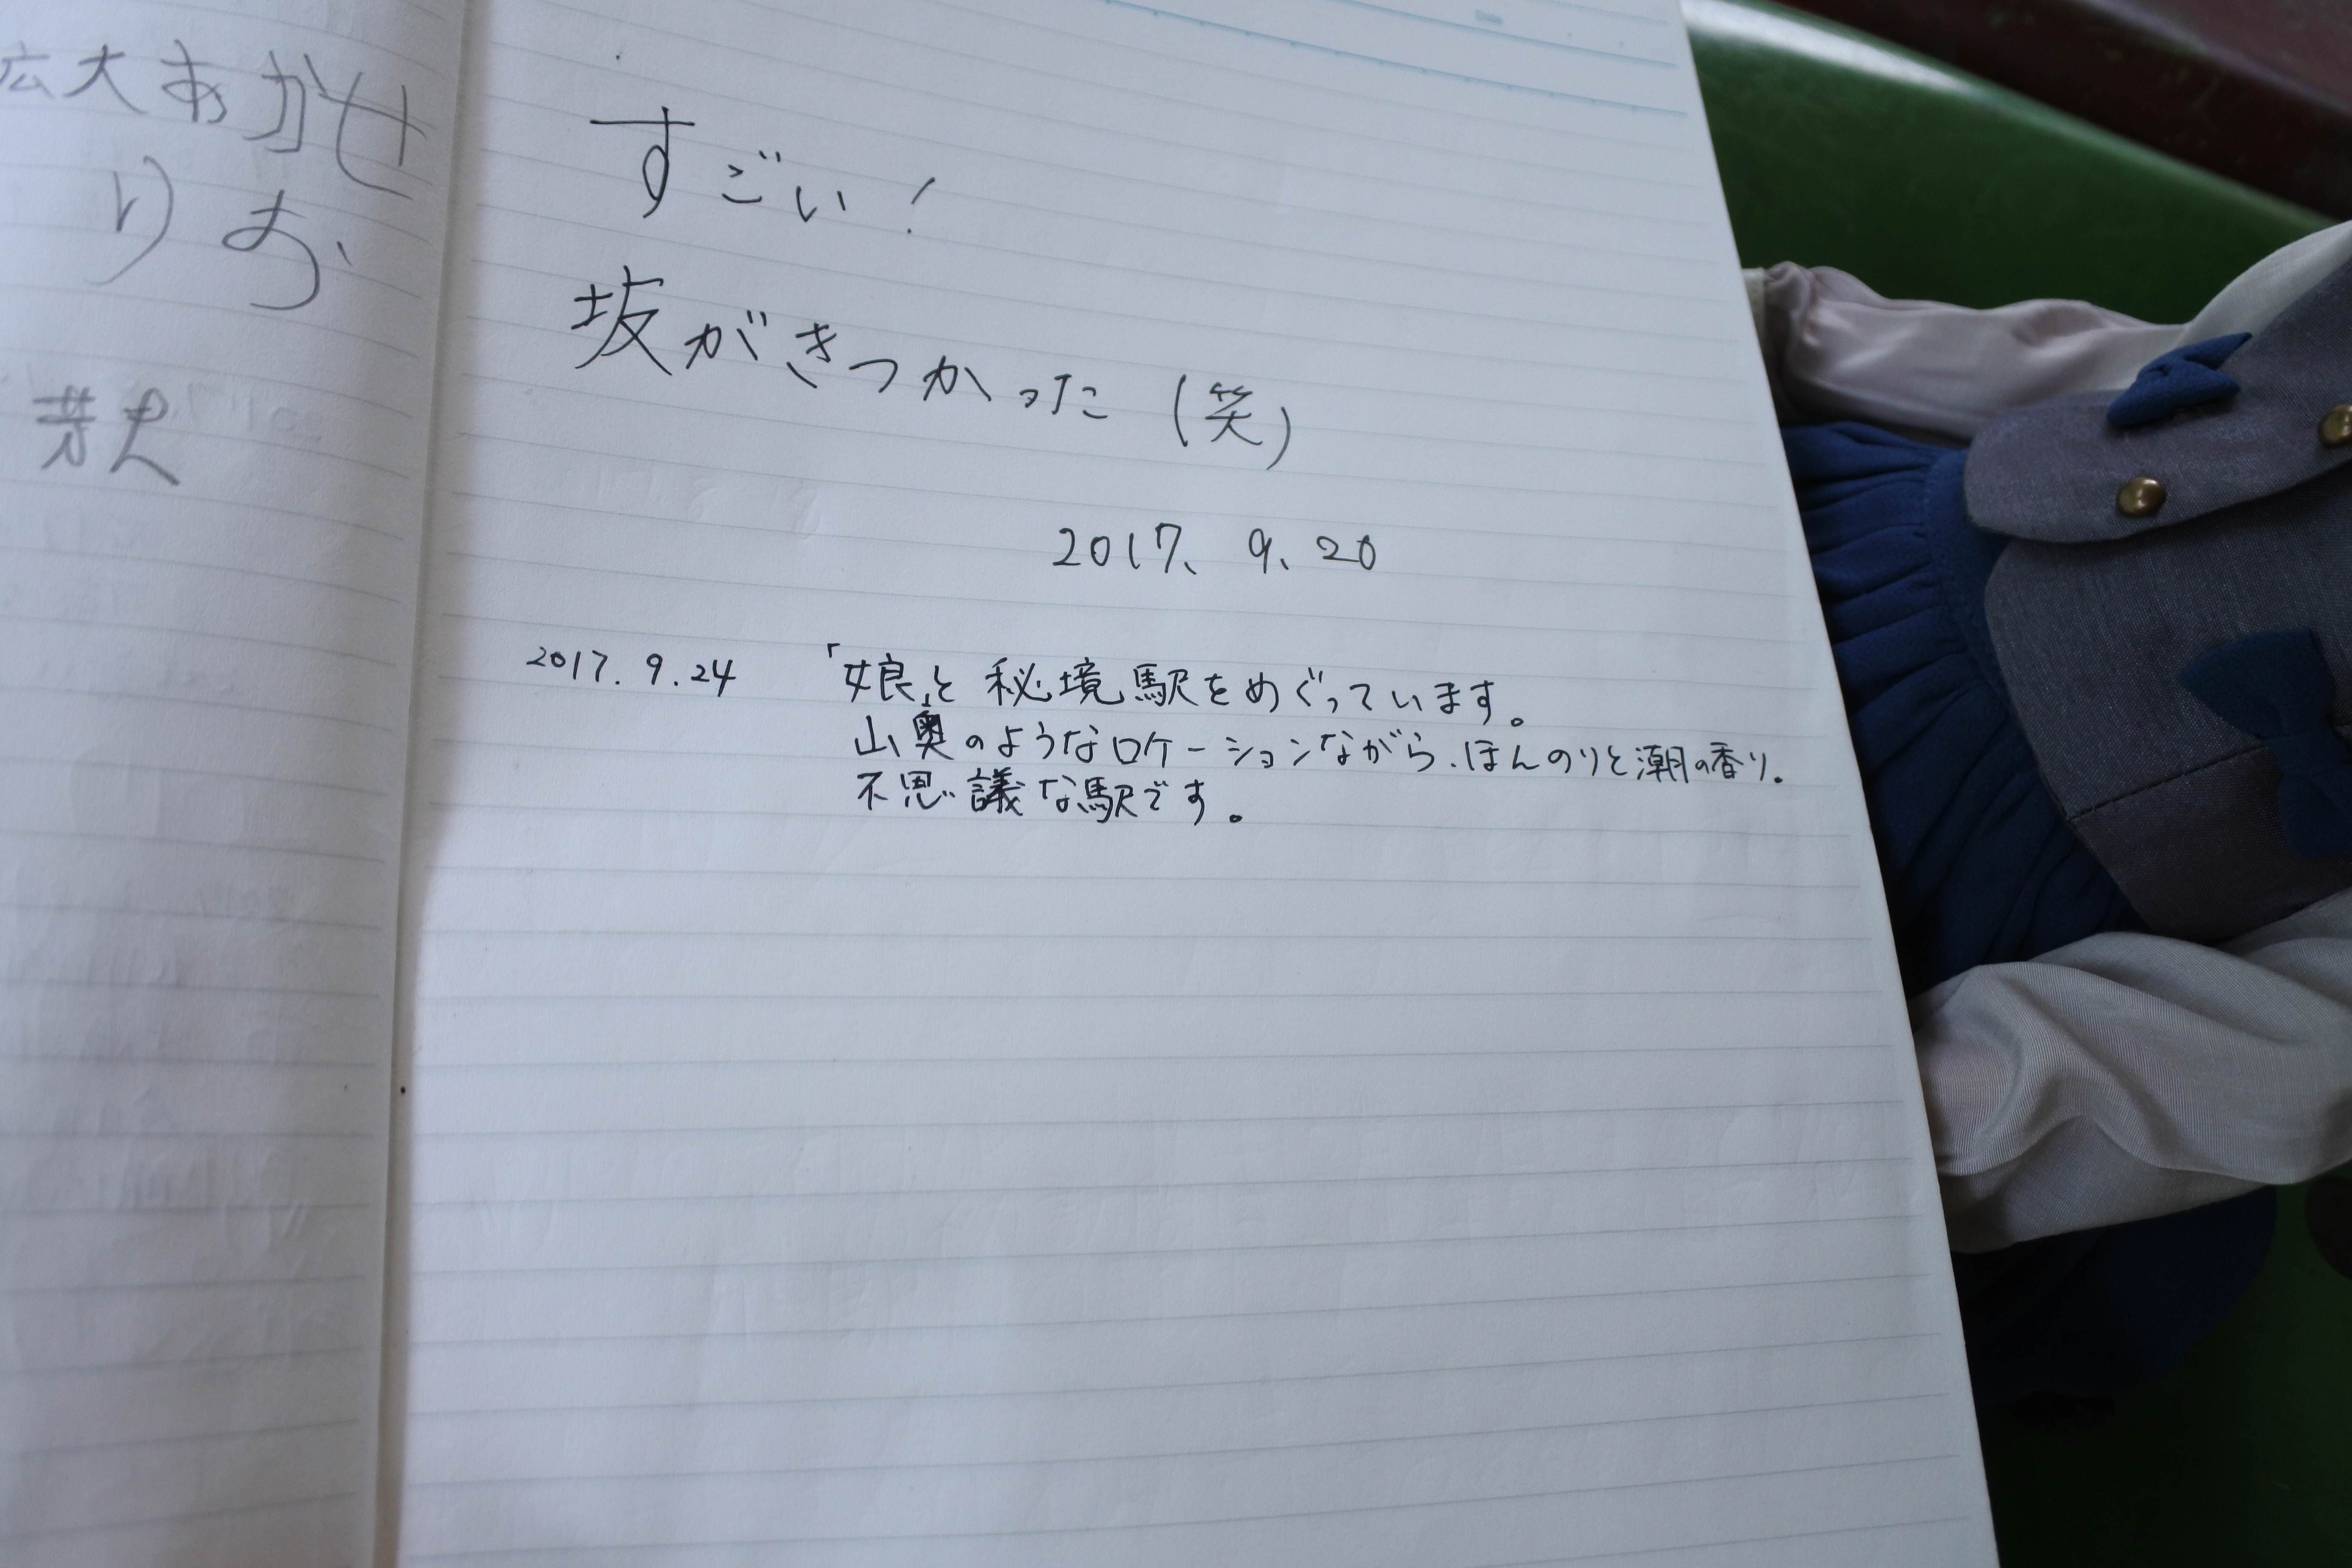 広大あかせ
りお
芳史
Date
すごい!
坂がきつかった(笑)
2017、9、20
2017.9.24 「娘」と秘境駅をめぐっています。
山奥のようなロケーションながら、ほんのりと潮の香り。
不思議な駅です。